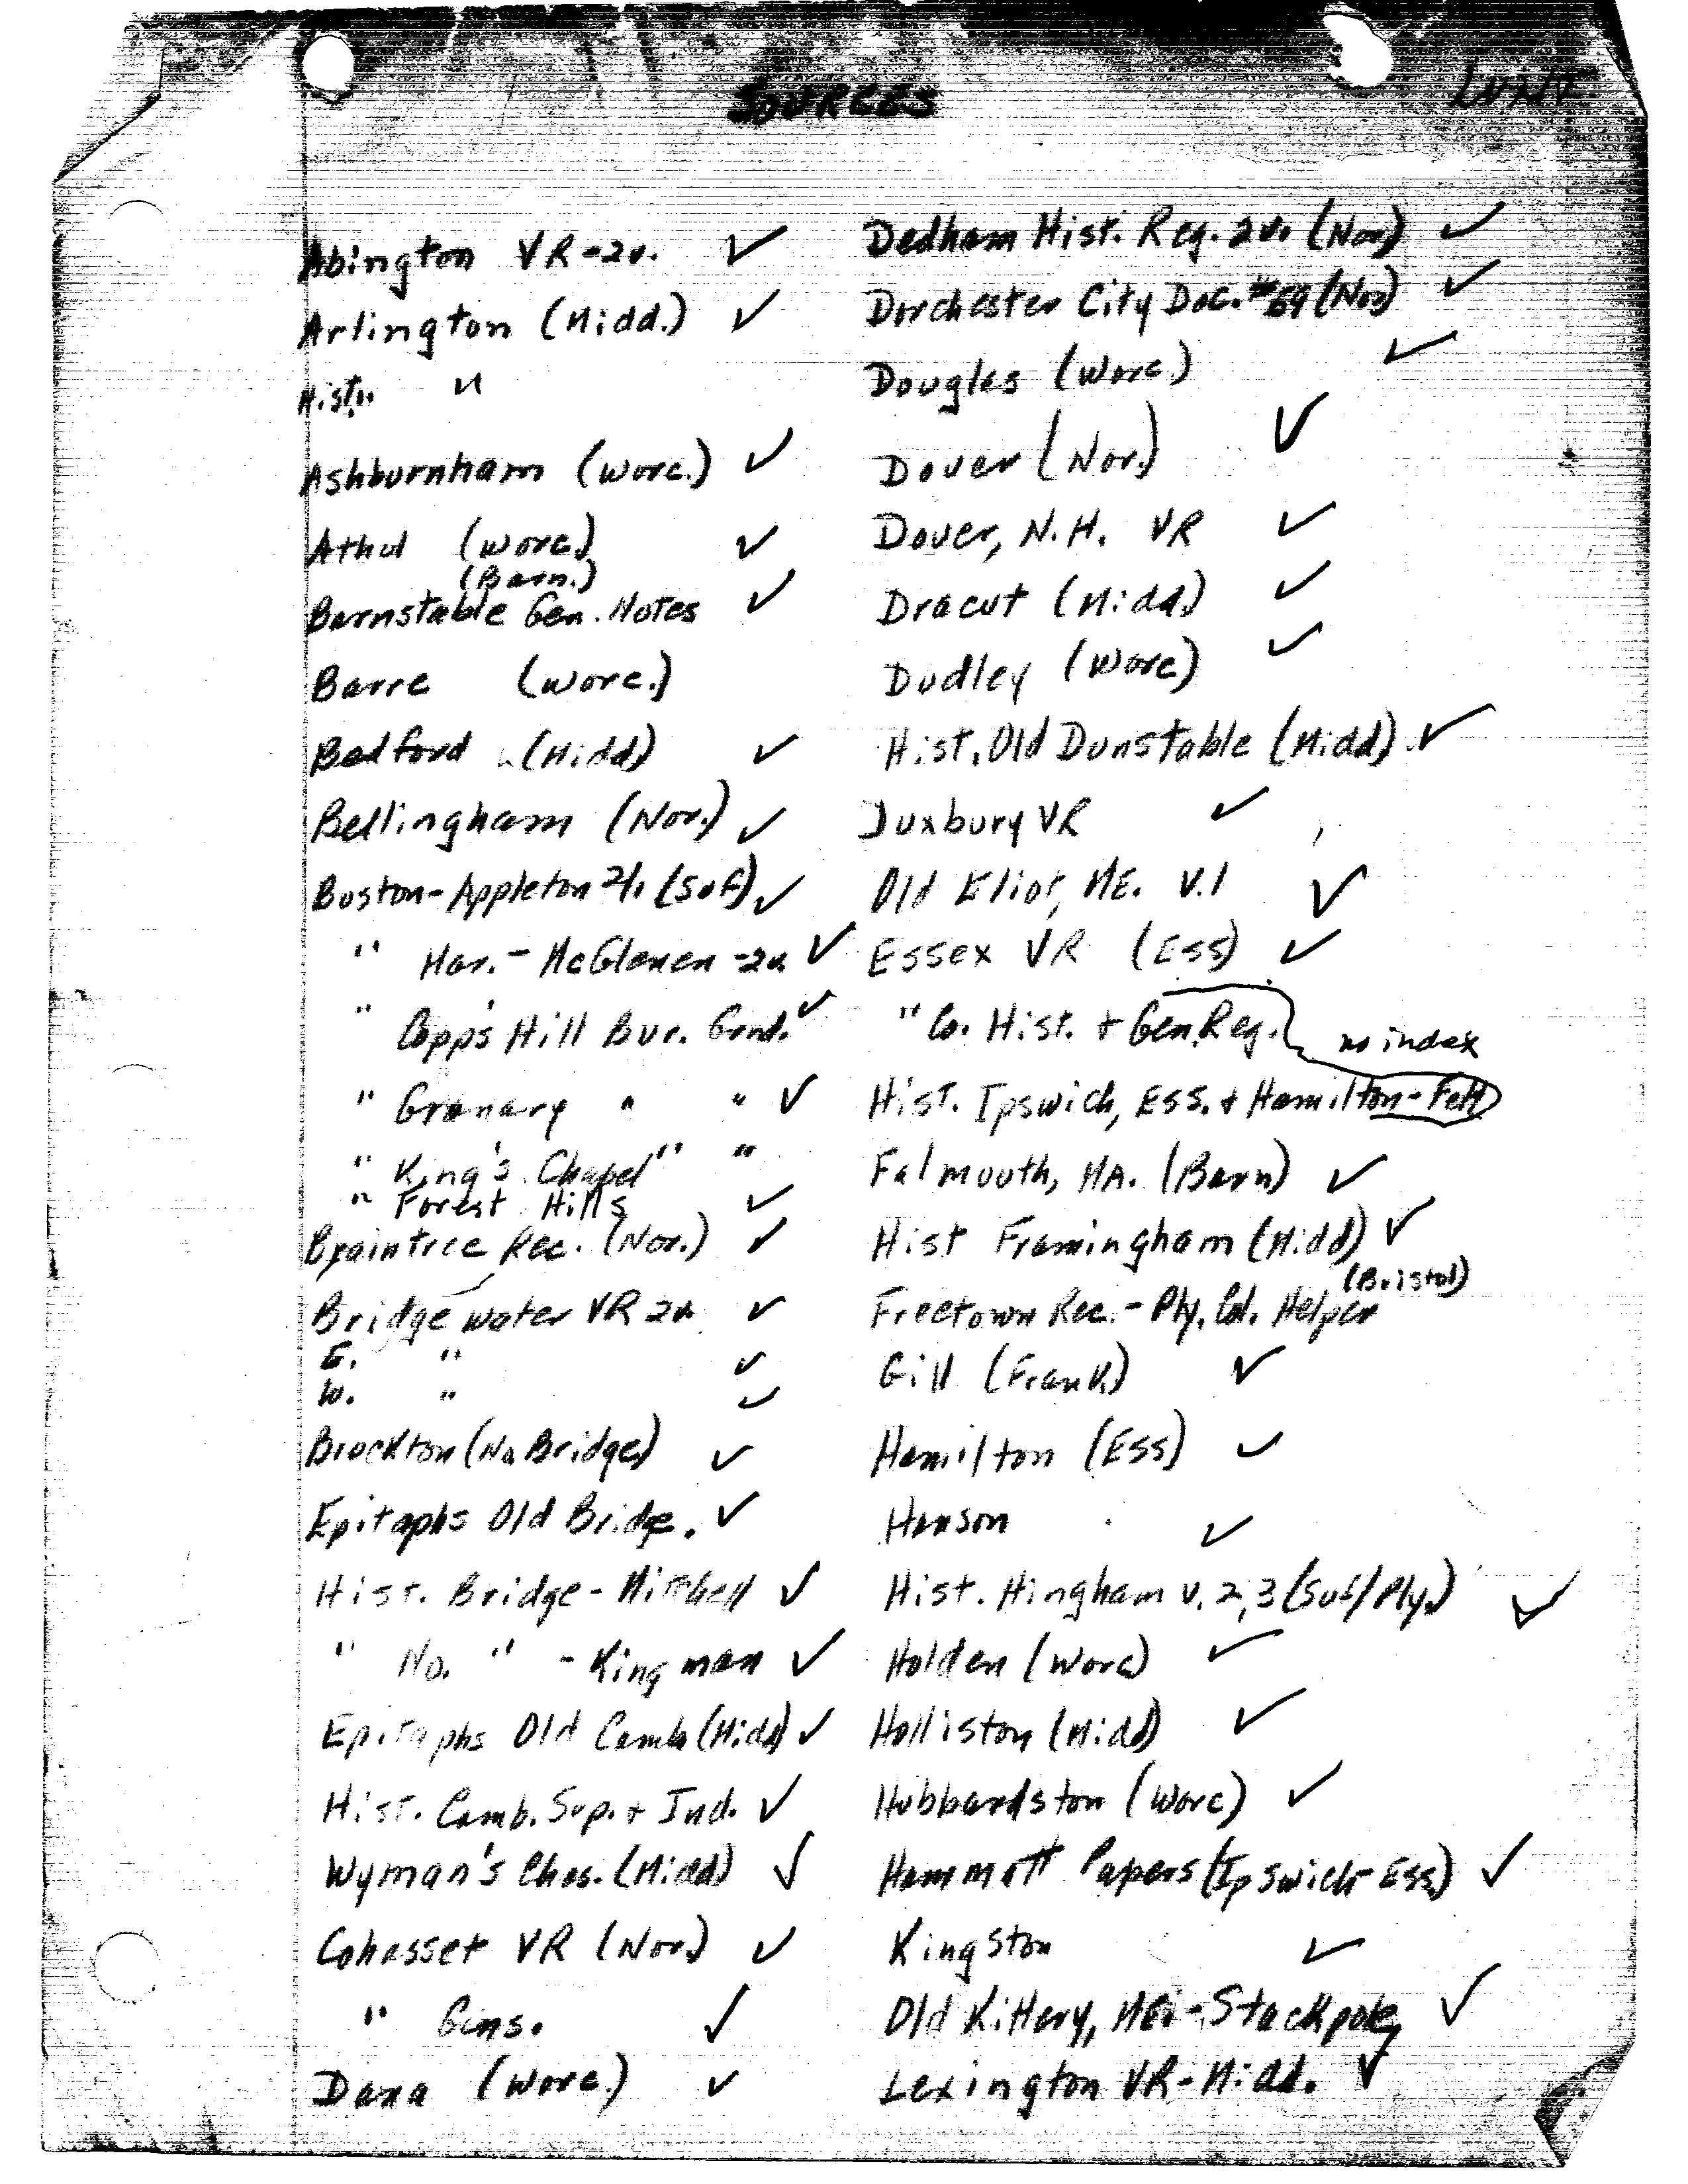 SOURCES
Abington VR-2v. ✓
Arlington (Midd.) ✓
Hist. "
Ashburnham (Worc.) ✓
Athol (Worc.) ✓
(Barn.)
Barnstable Gen. Notes ✓
Barre (Worc.)
Bedford (Midd) ✓
Bellingham (Nor.) ✓
Boston-Appleton 2/1 (Suf) ✓
" Har. - McGlenen -2v. ✓
" Copp's Hill Bur. Grnd. ✓
" Granary " " ✓
" King's Chapel " "
" Forest Hills ✓
Braintree Rec. (Nor.) ✓
Bridgewater VR 2v. ✓
E. " ✓
W. " ✓
Brockton (No Bridge) ✓
Epitaphs Old Bridge. ✓
Hist. Bridge - Mitchell ✓
" No. " - Kingman ✓
Epitaphs Old Camb (Midd) ✓
Hist. Camb. Sup. + Ind. ✓
Wyman's Chas. (Midd) ✓
Cohasset VR (Nor.) ✓
" Gens. ✓
Dana (Worc.) ✓
Dedham Hist. Reg. 2v. (Nor) ✓
Dorchester City Doc. #69 (Nor) ✓
Douglas (Worc) ✓
Dover (Nor.) ✓
Dover, N.H. VR ✓
Dracut (Midd.) ✓
Dudley (Worc) ✓
Hist. Old Dunstable (Midd) ✓
Duxbury VR ✓
Old Eliot, ME. V.1 ✓
Essex VR (Ess) ✓
" Co. Hist. + Gen. Reg. no index
Hist. Ipswich, Ess. + Hamilton - Felt
Falmouth, MA. (Barn) ✓
Hist Framingham (Midd) ✓
(Bristol)
Freetown Rec. - Ply. Col. Helper
Gill (Frank.) ✓
Hamilton (Ess) ✓
Hanson ✓
Hist. Hingham v. 2,3 (Suf/Ply.) ✓
Holden (Worc) ✓
Holliston (Midd) ✓
Hubbardston (Worc) ✓
Hammatt Papers (Ipswich-Ess) ✓
Kingston ✓
Old Kittery, ME. - Stackpole ✓
Lexington VR - Midd. ✓